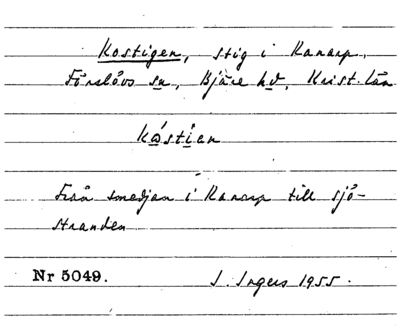 Kostigen, stig i Ranarp,
Förslövs sn, Bjäre hd, Krist. län
kǻstien
Från smedjan i Ranarp till sjö-
stranden
Nr 5049. I. Ingers 1955.